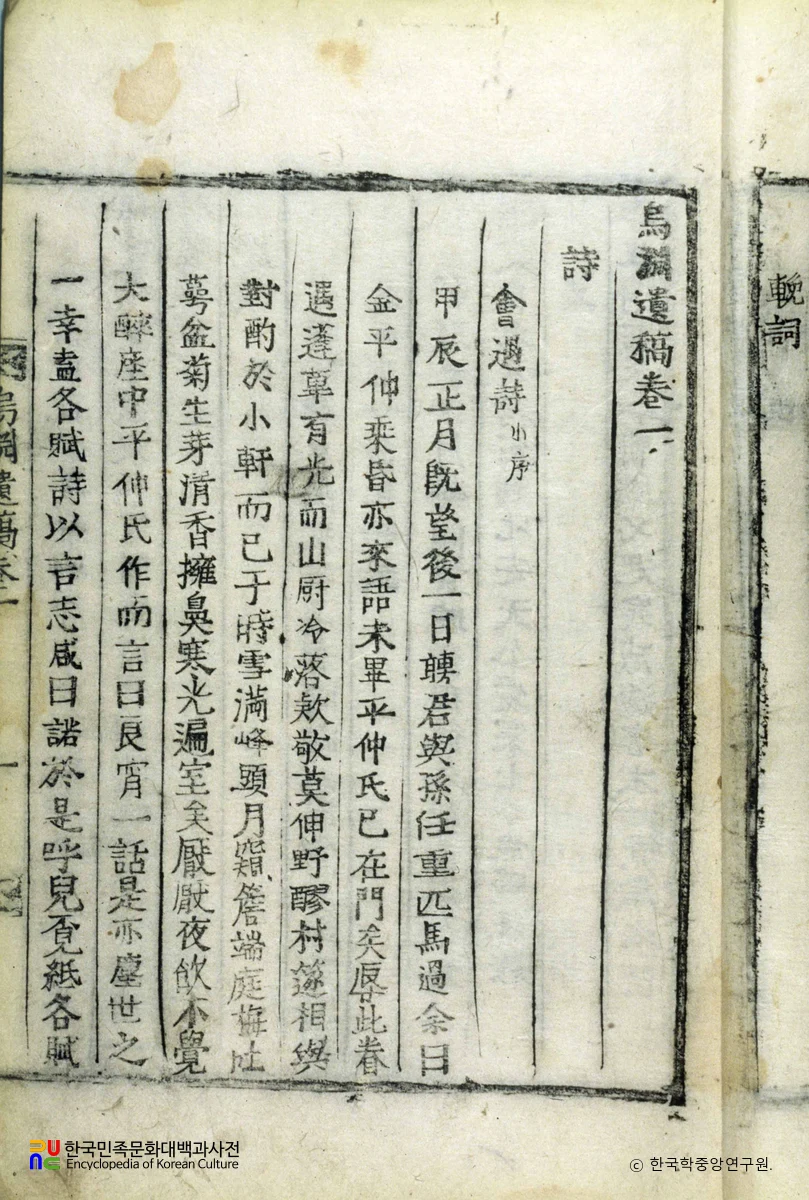 輓詞
烏淵遺稿卷一
詩
會過詩 小序
甲辰正月旣望後一日聘君與孫任重匹馬過余曰
金平仲乘昏亦來語未畢平仲氏已在門矣辱此眷
遇蓬蓽有光而山厨冷落欵敬莫伸野醪村相與
對酌於小軒而已于時雪滿峰頭月窺簷端庭梅吐
萼盆菊生芽清香擁鼻寒光遍室矣厭厭夜飮不覺
大醉座中平仲氏作而言曰良宵一話是亦塵世之
一幸盍各賦詩以言志咸曰諾於是呼兒覓紙各賦
烏淵遺稿卷一
一
한국민족문화대백과사전
Encyclopedia of Korean Culture
ⓒ 한국학중앙연구원.